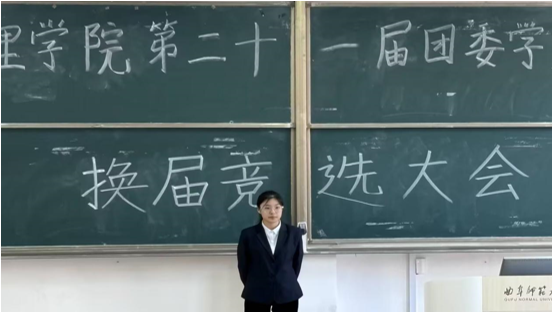 理学院第二十一届团委学
换届竞选大会
曲阜师范大
QUFU NORMAL UNIVER